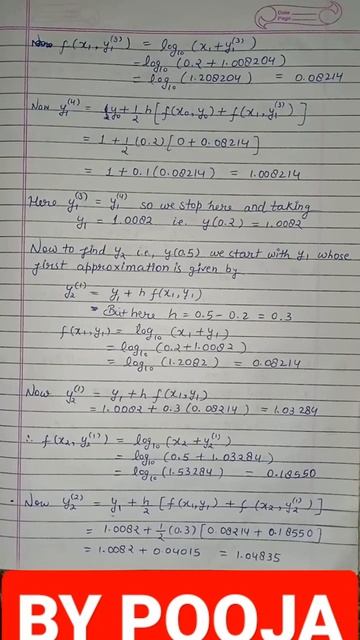 Date
Page
Now f(x₁, y₁⁽³⁾) = log₁₀ (x₁ + y₁⁽³⁾)
= log₁₀ (0.2 + 1.008204)
= log₁₀ (1.208204) = 0.08214
Now y₁⁽⁴⁾ = y₀ + 1/2 h [f(x₀, y₀) + f(x₁, y₁⁽³⁾)]
= 1 + 1/2 (0.2) [0 + 0.08214]
= 1 + 0.1 (0.08214) = 1.008214
Here y₁⁽³⁾ = y₁⁽⁴⁾ so we stop here and taking
y₁ = 1.0082 i.e. y(0.2) = 1.0082
Now to find y₂ i.e., y(0.5) we start with y₁ whose
first approximation is given by
y₂⁽¹⁾ = y₁ + h f(x₁, y₁)
But here h = 0.5 - 0.2 = 0.3
f(x₁, y₁) = log₁₀ (x₁ + y₁)
= log₁₀ (0.2 + 1.0082)
= log₁₀ (1.2082) = 0.08214
Now y₂⁽¹⁾ = y₁ + h f(x₁, y₁)
= 1.0082 + 0.3 (0.08214) = 1.03284
∴ f(x₂, y₂⁽¹⁾) = log₁₀ (x₂ + y₂⁽¹⁾)
= log₁₀ (0.5 + 1.03284)
= log₁₀ (1.53284) = 0.18550
Now y₂⁽²⁾ = y₁ + h/2 [f(x₁, y₁) + f(x₂, y₂⁽¹⁾)]
= 1.0082 + 1/2 (0.3) [0.08214 + 0.18550]
= 1.0082 + 0.04015 = 1.04835
BY POOJA